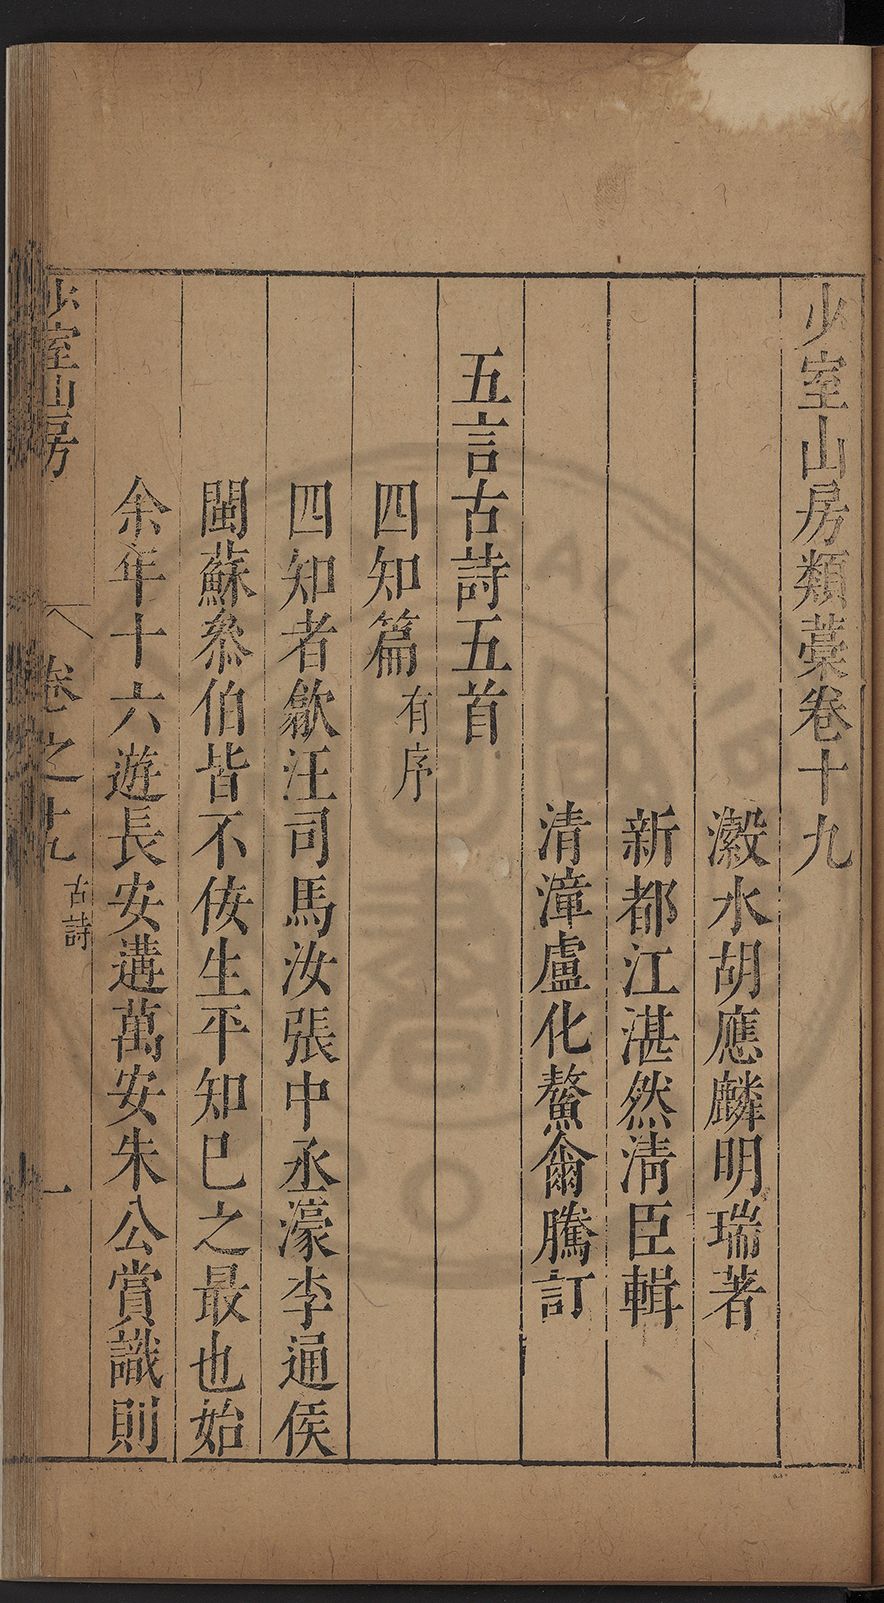 少室山房類藁卷十九
瀫水胡應麟明瑞著
新都江湛然清臣輯
清漳盧化鰲爾騰訂
五言古詩五首
四知篇有序
四知者歙汪司馬汝張中丞濠李通侯
閩蘇叅伯皆不佞生平知巳之最也始
余年十六遊長安遘萬安朱公賞識則
少室山房 卷之十九 古詩 一